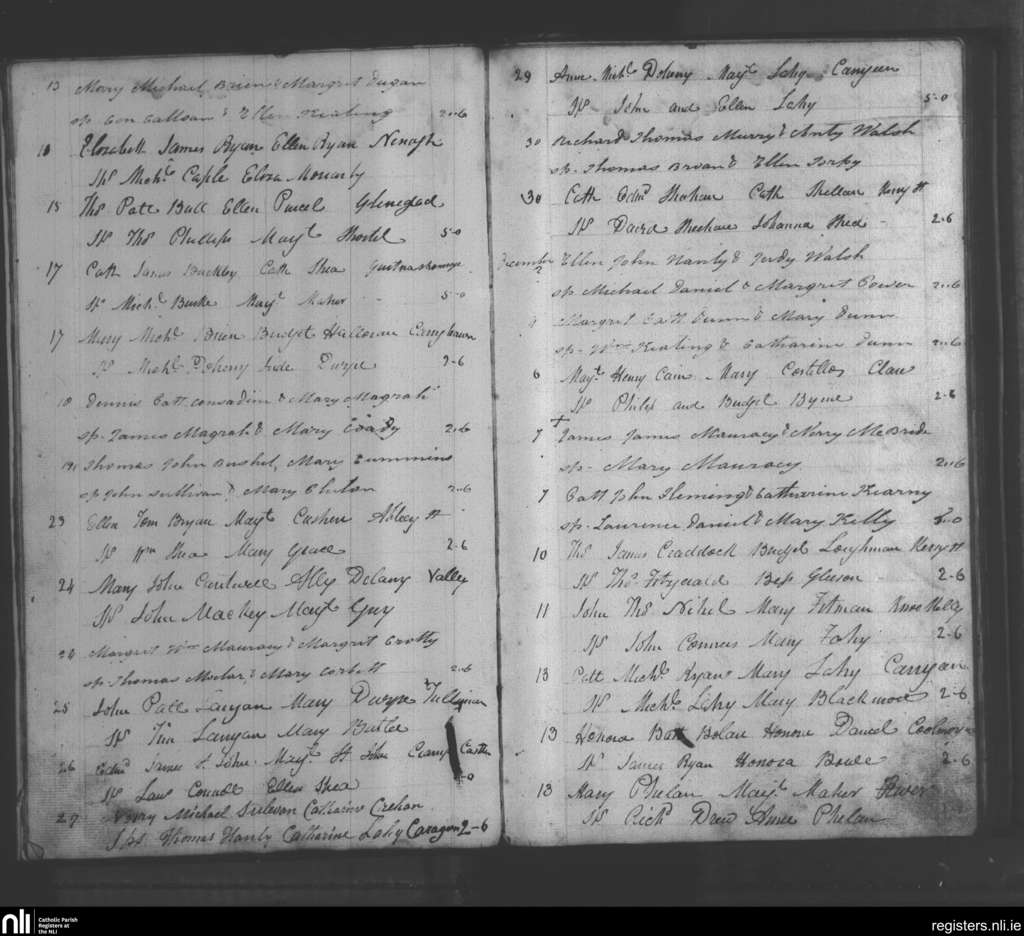 13 Norry Michael Brien & Margrit Dugan
sp. Con Callsan & Ellen Keating 2-6
16 Elizabeth James Ryan Ellen Ryan Nenagh
Sps Michl. Caple Elora Moriarty
15 Ths Patt Ball Ellen Purcel Glenegad
Sps Ths Phillips Mayt. 5-0
17 Cath James Buckley Cath Shea
Sps Michl. Burke Mayt. Maher 5-0
17 Mary Michl. Brien Budget Halloran
Sps Michl. Doheny Jude Dwyer 2-6
18 Dennis Patt Consadin & Mary Magrah
sp. James Magrah & Mary Coady 2-6
19 Thomas John Bushel, Mary Cummins
sp John Sullivan & Mary Phelan 2-6
23 Ellen Tom Bryan Mayt Cashen Abbey St
Sps Wm Shea Mary Grace 2-6
24 Mary John Cantwell Ally Delany Valley
Sps John Mackey Mayt Guy
24 Margrit Wm Mauracy & Margrit Crotty
sp. Thomas & Mary Corbett 2-6
25 John Patt Lanyan Mary Dwyre
Sps Tim Lanyan Mary Butler
26 Edmd James St. John Mayt. St John Castle
Sps Law Connell Ellen Shea
27 Norry Michael Sulevan Catharine Crehan
Sps Thomas Hanly Catharine Lahy Caragon 2-6
29 Anne Michl. Doheny Mayt. Lahy Carrigeen
Sps John and Ellen Lahy 5-0
30 Richard Thomas Murry & Anty Walsh
sp. Thomas & Ellen Torpy
30 Cath Edmd Shehan Cath Kerry St
Sps David Sheehan Johanna 2-6
December 2 Ellen John Hanly & Judy Walsh
sp Michael Daniel & Margrit Power 2-6
4 Margrit Patt Dunn & Mary Dunn
sp- Wm Keating & Catharine Dunn 2-6
6 Mayt. Henry Cain Mary Costillos Clare
Sps Philip and Budget Byrne 2-6
+
7 James James Mauracy & Norry McBride
sp- Mary Mauracy 2-6
7 Patt John Fleming & Catharine Kearny
sp. Laurence Daniel & Mary Kelly
10 Ths James Craddock Budget Loughman Kerry St
Sps Ths. Fitzgerald Bess Gleeson 2-6
11 John Ths Nihel Mary Pitman
Sps John Connors Mary Fahy 2-6
13 Patt Michl. Ryan Mary Lahy Carrigan
Sps Michl. Lahy Mary Blackmore 2-6
13 Honora Batt Bolan Honora Daniel
Sps James Ryan Honora 2-6
13 Mary Phelan Mayt. Maher
Sps Richd Drew Anne Phelan
nli Catholic Parish Registers at the NLI
registers.nli.ie